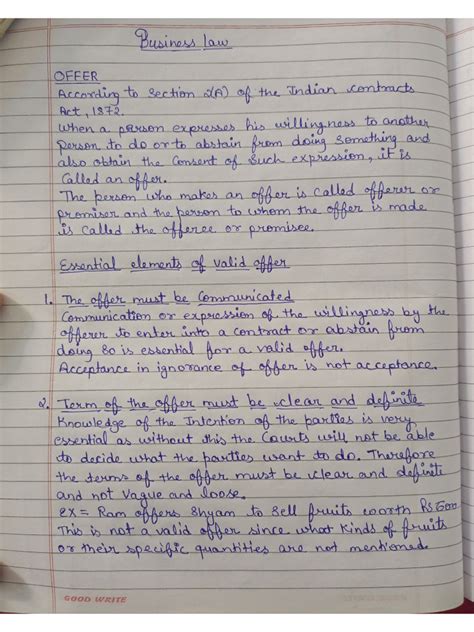 Business law
OFFER
According to Section 2(A) of the Indian contracts
Act, 1872.
when a person expresses his willingness to another
person to do or to abstain from doing something and
also obtain the consent of such expression, it is
called an offer.
The person who makes an offer is called offerer or
promiser and the person to whom the offer is made
is called the offeree or promisee.
Essential elements of valid offer
1. The offer must be communicated
Communication or expression of the willingness by the
offerer to enter into a contract or abstain from
doing so is essential for a valid offer.
Acceptance in ignorance of offer is not acceptance.
2. Term of the offer must be clear and definite
Knowledge of the Intention of the parties is very
essential as without this the Courts will not be able
to decide what the parties want to do. Therefore
the terms of the offer must be clear and definite
and not vague and loose.
ex = Ram offers Shyam to sell fruits worth
This is not a valid offer since what kinds of fruits
or their specific quantities are not mentioned.
GOOD WRITE